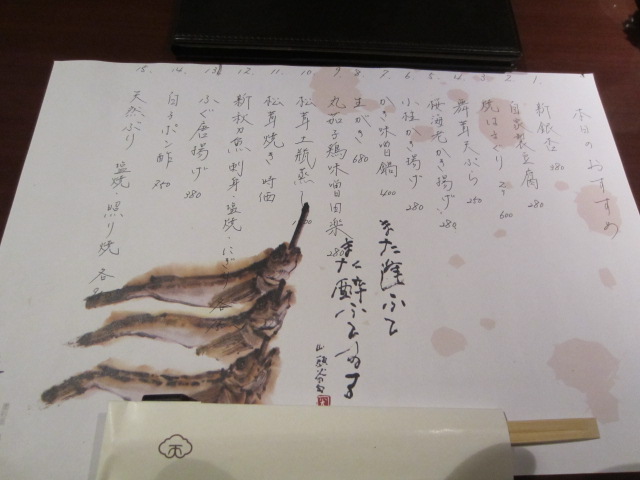 本日のおすすめ
1. 新銀杏 380
2. 自家製豆腐 280
3. 焼はまぐり 2ヶ 600
4. 舞茸天ぷら 250
5. 桜海老かき揚げ 280
6. 小柱かき揚げ 280
7. かき味噌鍋 400
8. 生がき 680
9. 丸茄子鶏味噌田楽 280
10. 松茸土瓶蒸し
11. 松茸焼き 時価
12. 新秋刀魚 刺身・塩焼・にぎり
13. ふぐ唐揚げ 380
14. 白子ポン酢 750
15. 天然ぶり 塩焼・照り焼 各
また逢ふて
また酔ふてゐる